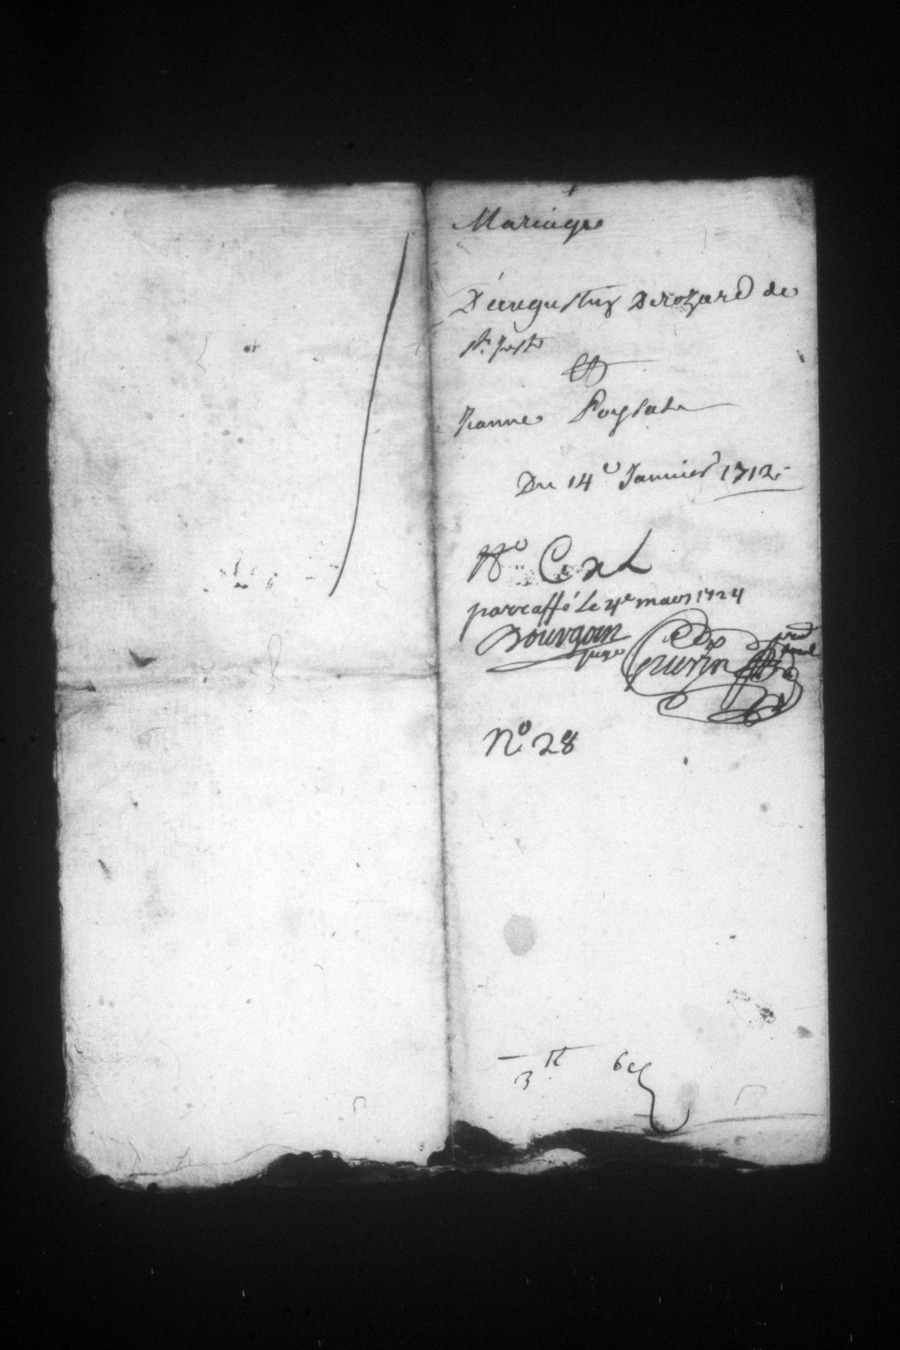 Mariage
D'augustus Derozard de
st. just
Et
Jeanne Poylat
Du 14e Janvier 1712
No
parraffé le 4e mars 1724
Bourgoin
juge
Guerin
No 28
3 tt 6